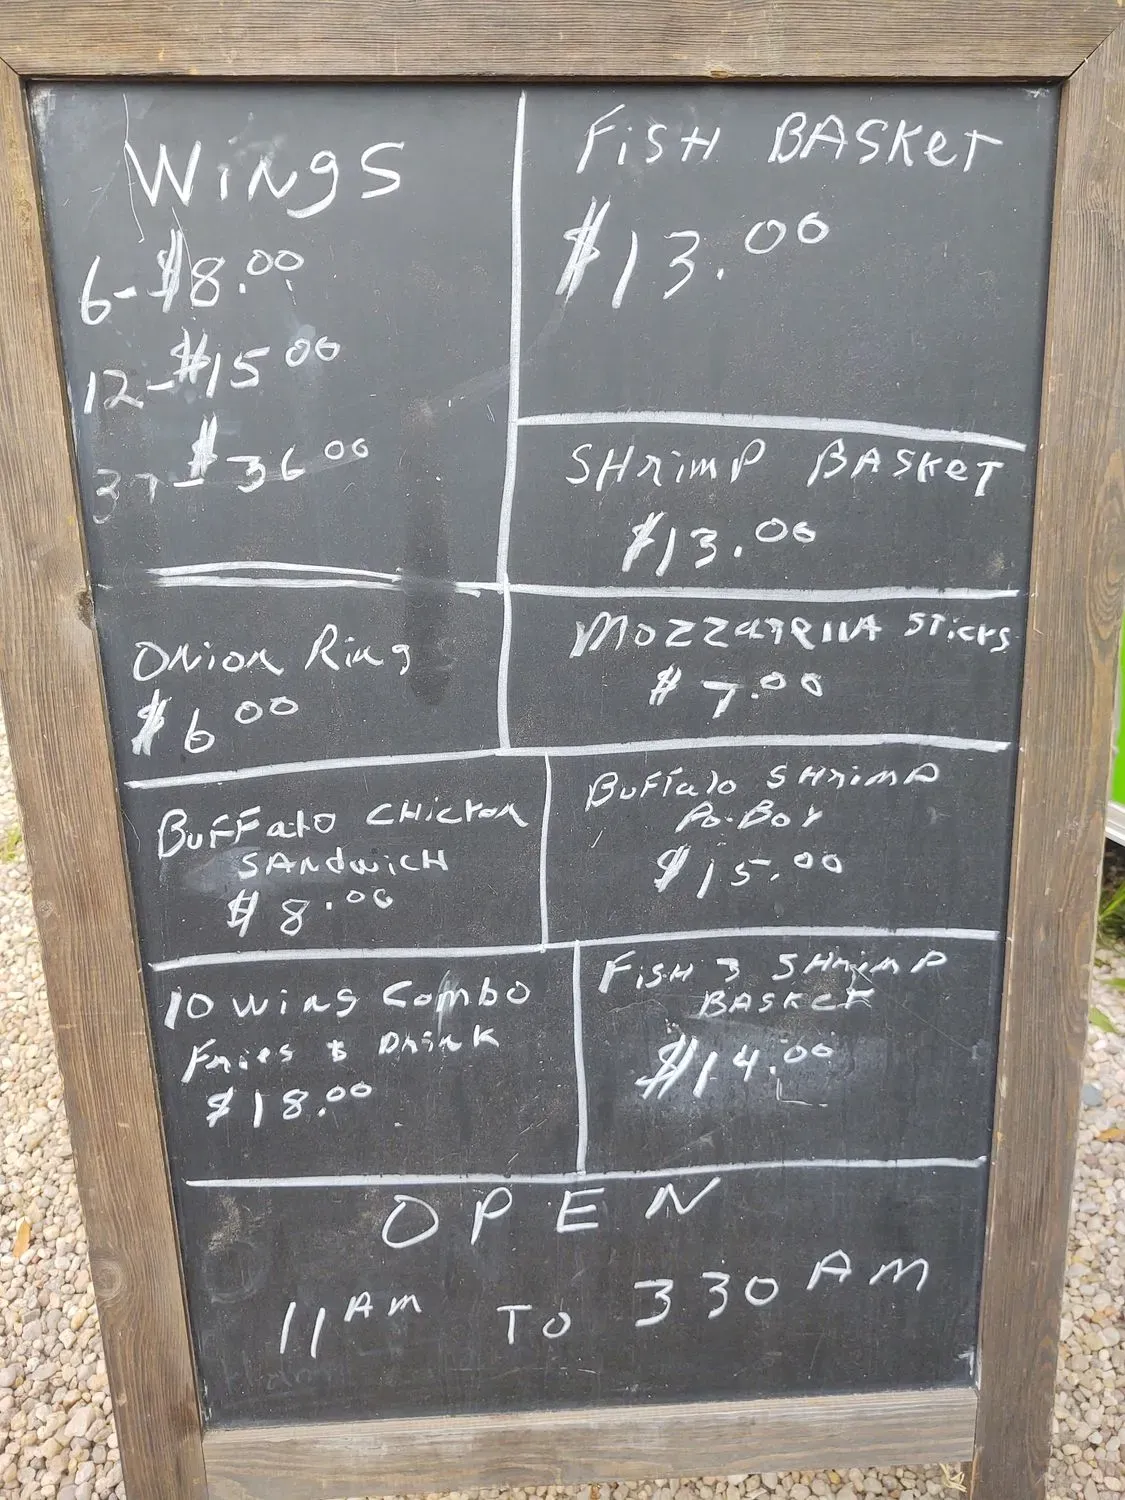 Wings
6-$8.00
12-$15 00
$36 00
Fish Basket
$13.00
Shrimp Basket
$13.00
Onion Ring
$6 00
Sticks
$7.00
Buffalo Chicken
Sandwich
$8.00
Buffalo Shrimp
Po-Boy
$15.00
10 Wing Combo
Fries & Drink
$18.00
Fish 3 Shrimp
Basket
$14.00
OPEN
11 AM TO 330 AM